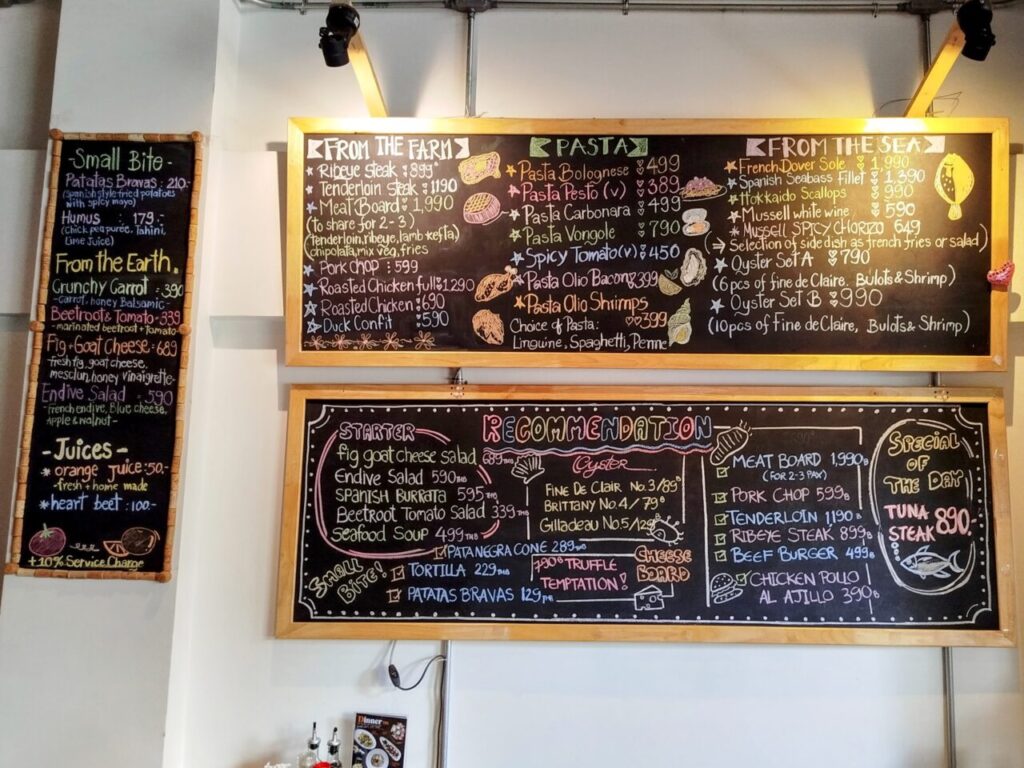 - Small Bite -
Patatas Bravas 210.-
(Spanish style fried potatoes
with spicy mayo)
Humus : 179.-
(Chick pea purée, Tahini,
Lime Juice)
From the Earth.
Crunchy Carrot : 390
-Carrot, honey Balsamic-
Beetroot & Tomato - 339
-marinated beetroot + Tomato-
Fig + Goat Cheese - 689
-fresh fig, goat cheese,
mesclun, honey vinaigrette-
Endive Salad - 590
-french endive, Blue cheese,
Apple & walnut-
- Juices -
* orange Juice : 50.-
-fresh + home made
* heart beet : 100.-
+10% Service Charge
FROM THE FARM
Ribeye steak 899
Tenderloin steak 1190
Meat Board 1,990
(To share for 2-3)
(tenderloin, ribeye, lamb kefta)
chipolata, mix veg, fries
Pork chop : 599
Roasted Chicken full 1290
Roasted Chicken 690
Duck Confit 590
PASTA
Pasta Bolognese 499
Pasta Pesto (v) 389
Pasta Carbonara 499
Pasta Vongole 790
Spicy Tomato (v) 450
Pasta Olio Bacon 399
Pasta Olio Shrimps
399
Choice of Pasta :
Linguine, Spaghetti, Penne
FROM THE SEA
French Dover Sole 1,990
Spanish Seabass Fillet 1,390
Hokkaido Scallops 990
Mussell white wine 590
Mussell SPICY CHORIZO 649
(→ Selection of side dish as french fries or salad)
Oyster Set A 790
(6 pcs of fine de Claire, Bulots & Shrimp)
Oyster Set B 990
(10 pcs of Fine de Claire, Bulots & Shrimp)
RECOMMENDATION
STARTER
fig goat cheese salad 689 THB
Endive Salad 590 THB
SPANISH BURRATA 595 THB
Beetroot Tomato Salad 339 THB
Seafood Soup 499 THB
SMALL BITE!
PATA NEGRA CONE 289 THB
TORTILLA 229 THB
PATATAS BRAVAS 129 THB
Oyster
FINE DE CLAIR No.3/89
BRITTANY No.4/79
Gilladeau No.5/129
390 TRUFFLE
TEMPTATION!
CHEESE
BOARD
MEAT BOARD 1,990฿
(FOR 2-3 PAX)
PORK CHOP 599฿
TENDERLOIN 1,190฿
RIBEYE STEAK 899฿
BEEF BURGER 499฿
CHICKEN POLLO
AL AJILLO 390฿
SPECIAL
OF
THE DAY
TUNA
STEAK 890.-
Dinner